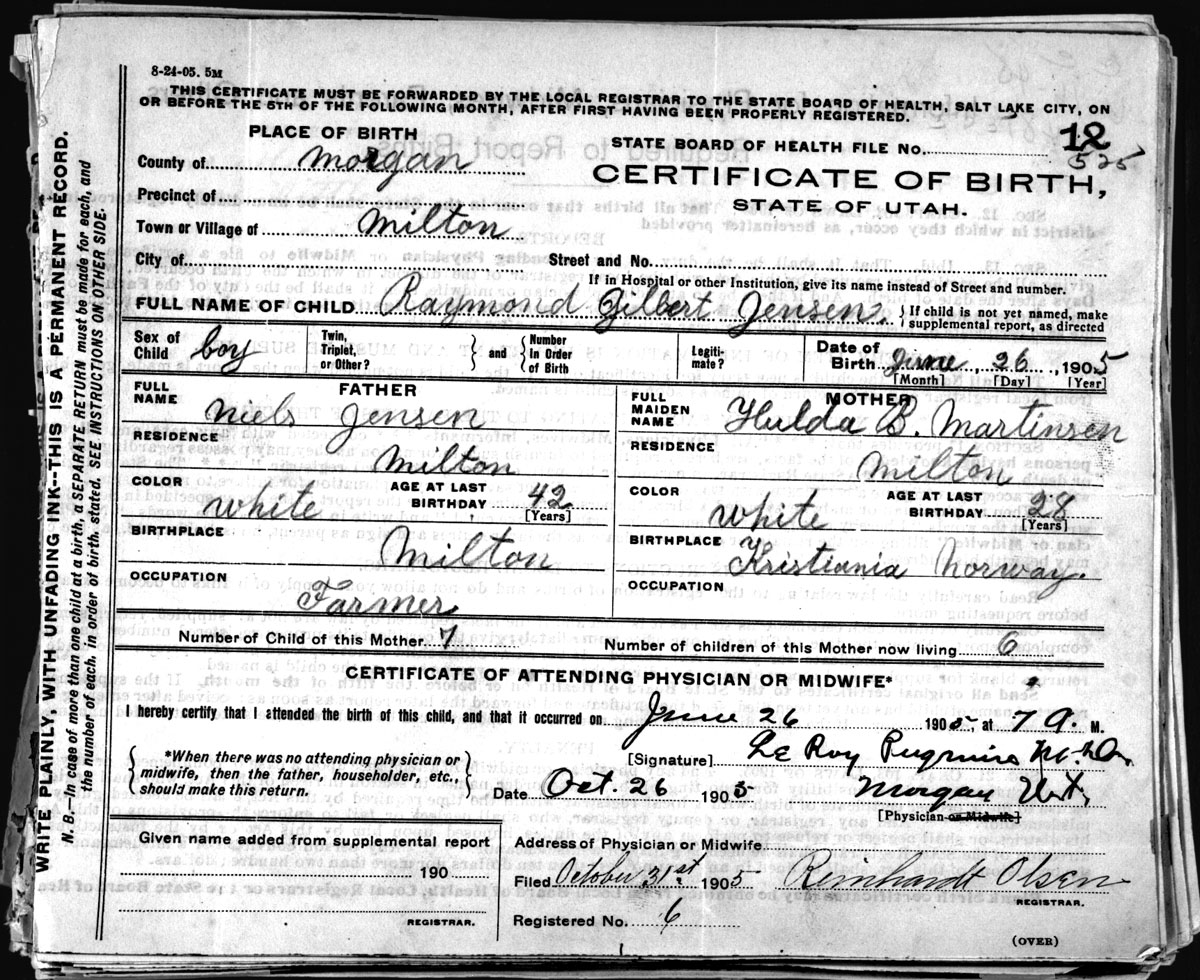 8-24-05. 5M
THIS CERTIFICATE MUST BE FORWARDED BY THE LOCAL REGISTRAR TO THE STATE BOARD OF HEALTH, SALT LAKE CITY, ON
OR BEFORE THE 5TH OF THE FOLLOWING MONTH, AFTER FIRST HAVING BEEN PROPERLY REGISTERED.
PLACE OF BIRTH
STATE BOARD OF HEALTH FILE NO. 12
525
County of Morgan
CERTIFICATE OF BIRTH,
STATE OF UTAH.
Precinct of
Town or Village of Milton
City of Street and No.
If in Hospital or other Institution, give its name instead of Street and number.
FULL NAME OF CHILD Raymond Gilbert Jensen. } If child is not yet named, make
supplemental report, as directed
Sex of Child boy Twin, Triplet, or Other? } and { Number In Order of Birth Legiti-mate? Date of Birth June, 26, 1905
[Month] [Day] [Year]
FATHER
FULL NAME Niels Jensen
RESIDENCE
Milton
COLOR white AGE AT LAST BIRTHDAY 42
[Years]
BIRTHPLACE
Milton
OCCUPATION
Farmer
MOTHER
FULL MAIDEN NAME Hulda B. Martinsen
RESIDENCE
Milton
COLOR white AGE AT LAST BIRTHDAY 28
[Years]
BIRTHPLACE
Kristiania Norway.
OCCUPATION
Number of Child of this Mother 7 Number of children of this Mother now living 6
CERTIFICATE OF ATTENDING PHYSICIAN OR MIDWIFE*
I hereby certify that I attended the birth of this child, and that it occurred on June 26 1905, at 7 A. M.
{ *When there was no attending physician or
midwife, then the father, householder, etc.,
should make this return. }
[Signature] Le Roy Pugmire M.D.
Date Oct. 26 1905 Morgan Ut.
[Physician or Midwife]
Given name added from supplemental report
190
REGISTRAR.
Address of Physician or Midwife
Filed October 31st. 1905 Reinhardt Olsen
REGISTRAR.
Registered No. 6
(OVER)
WRITE PLAINLY, WITH UNFADING INK--THIS IS A PERMANENT RECORD.
N. B.—In case of more than one child at a birth, a SEPARATE RETURN must be made for each, and
the number of each, in order of birth, stated. SEE INSTRUCTIONS ON OTHER SIDE.